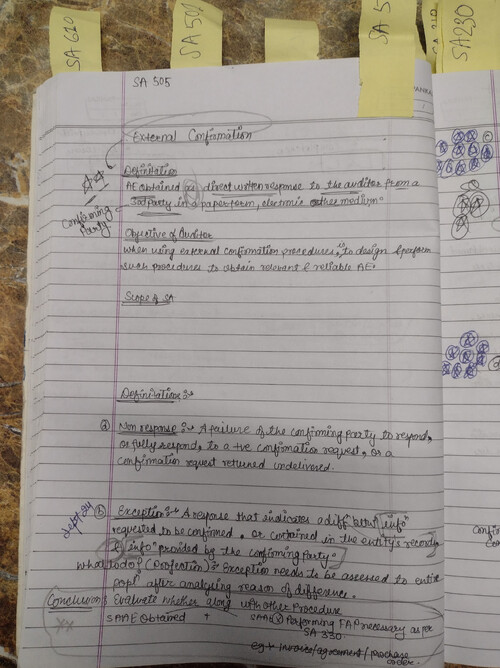 SA 610
SA 501
SA 5
SA 210
SA230
SA 505
External Confirmation
Definitation
AE obtained as direct written response to the auditor from a
3rd party in a paper form, electronic or other medium
Confirming
Party
Objective of Auditor
When using external confirmation procedures, is to design & perform
such procedures to obtain relevant & reliable AE.
Scope of SA
Definitation :-
(a) Non response :- A failure of the confirming party to respond,
or fully respond, to a +ve confirmation request, or a
confirmation request returned undelivered.
Sept-24
(b) Exception :- A response that indicates a diff betn info
requested to be confirmed, or contained in the entity's records
& info provided by the confirming party
What to do? Exception needs to be assessed to entire
popn after analysing reason of difference.
Conclusion: Evaluate whether along with other Procedure
SAAE Obtained + Performing FAP necessary as per
SA 330
eg :- invoice/agreement/purchase
order.